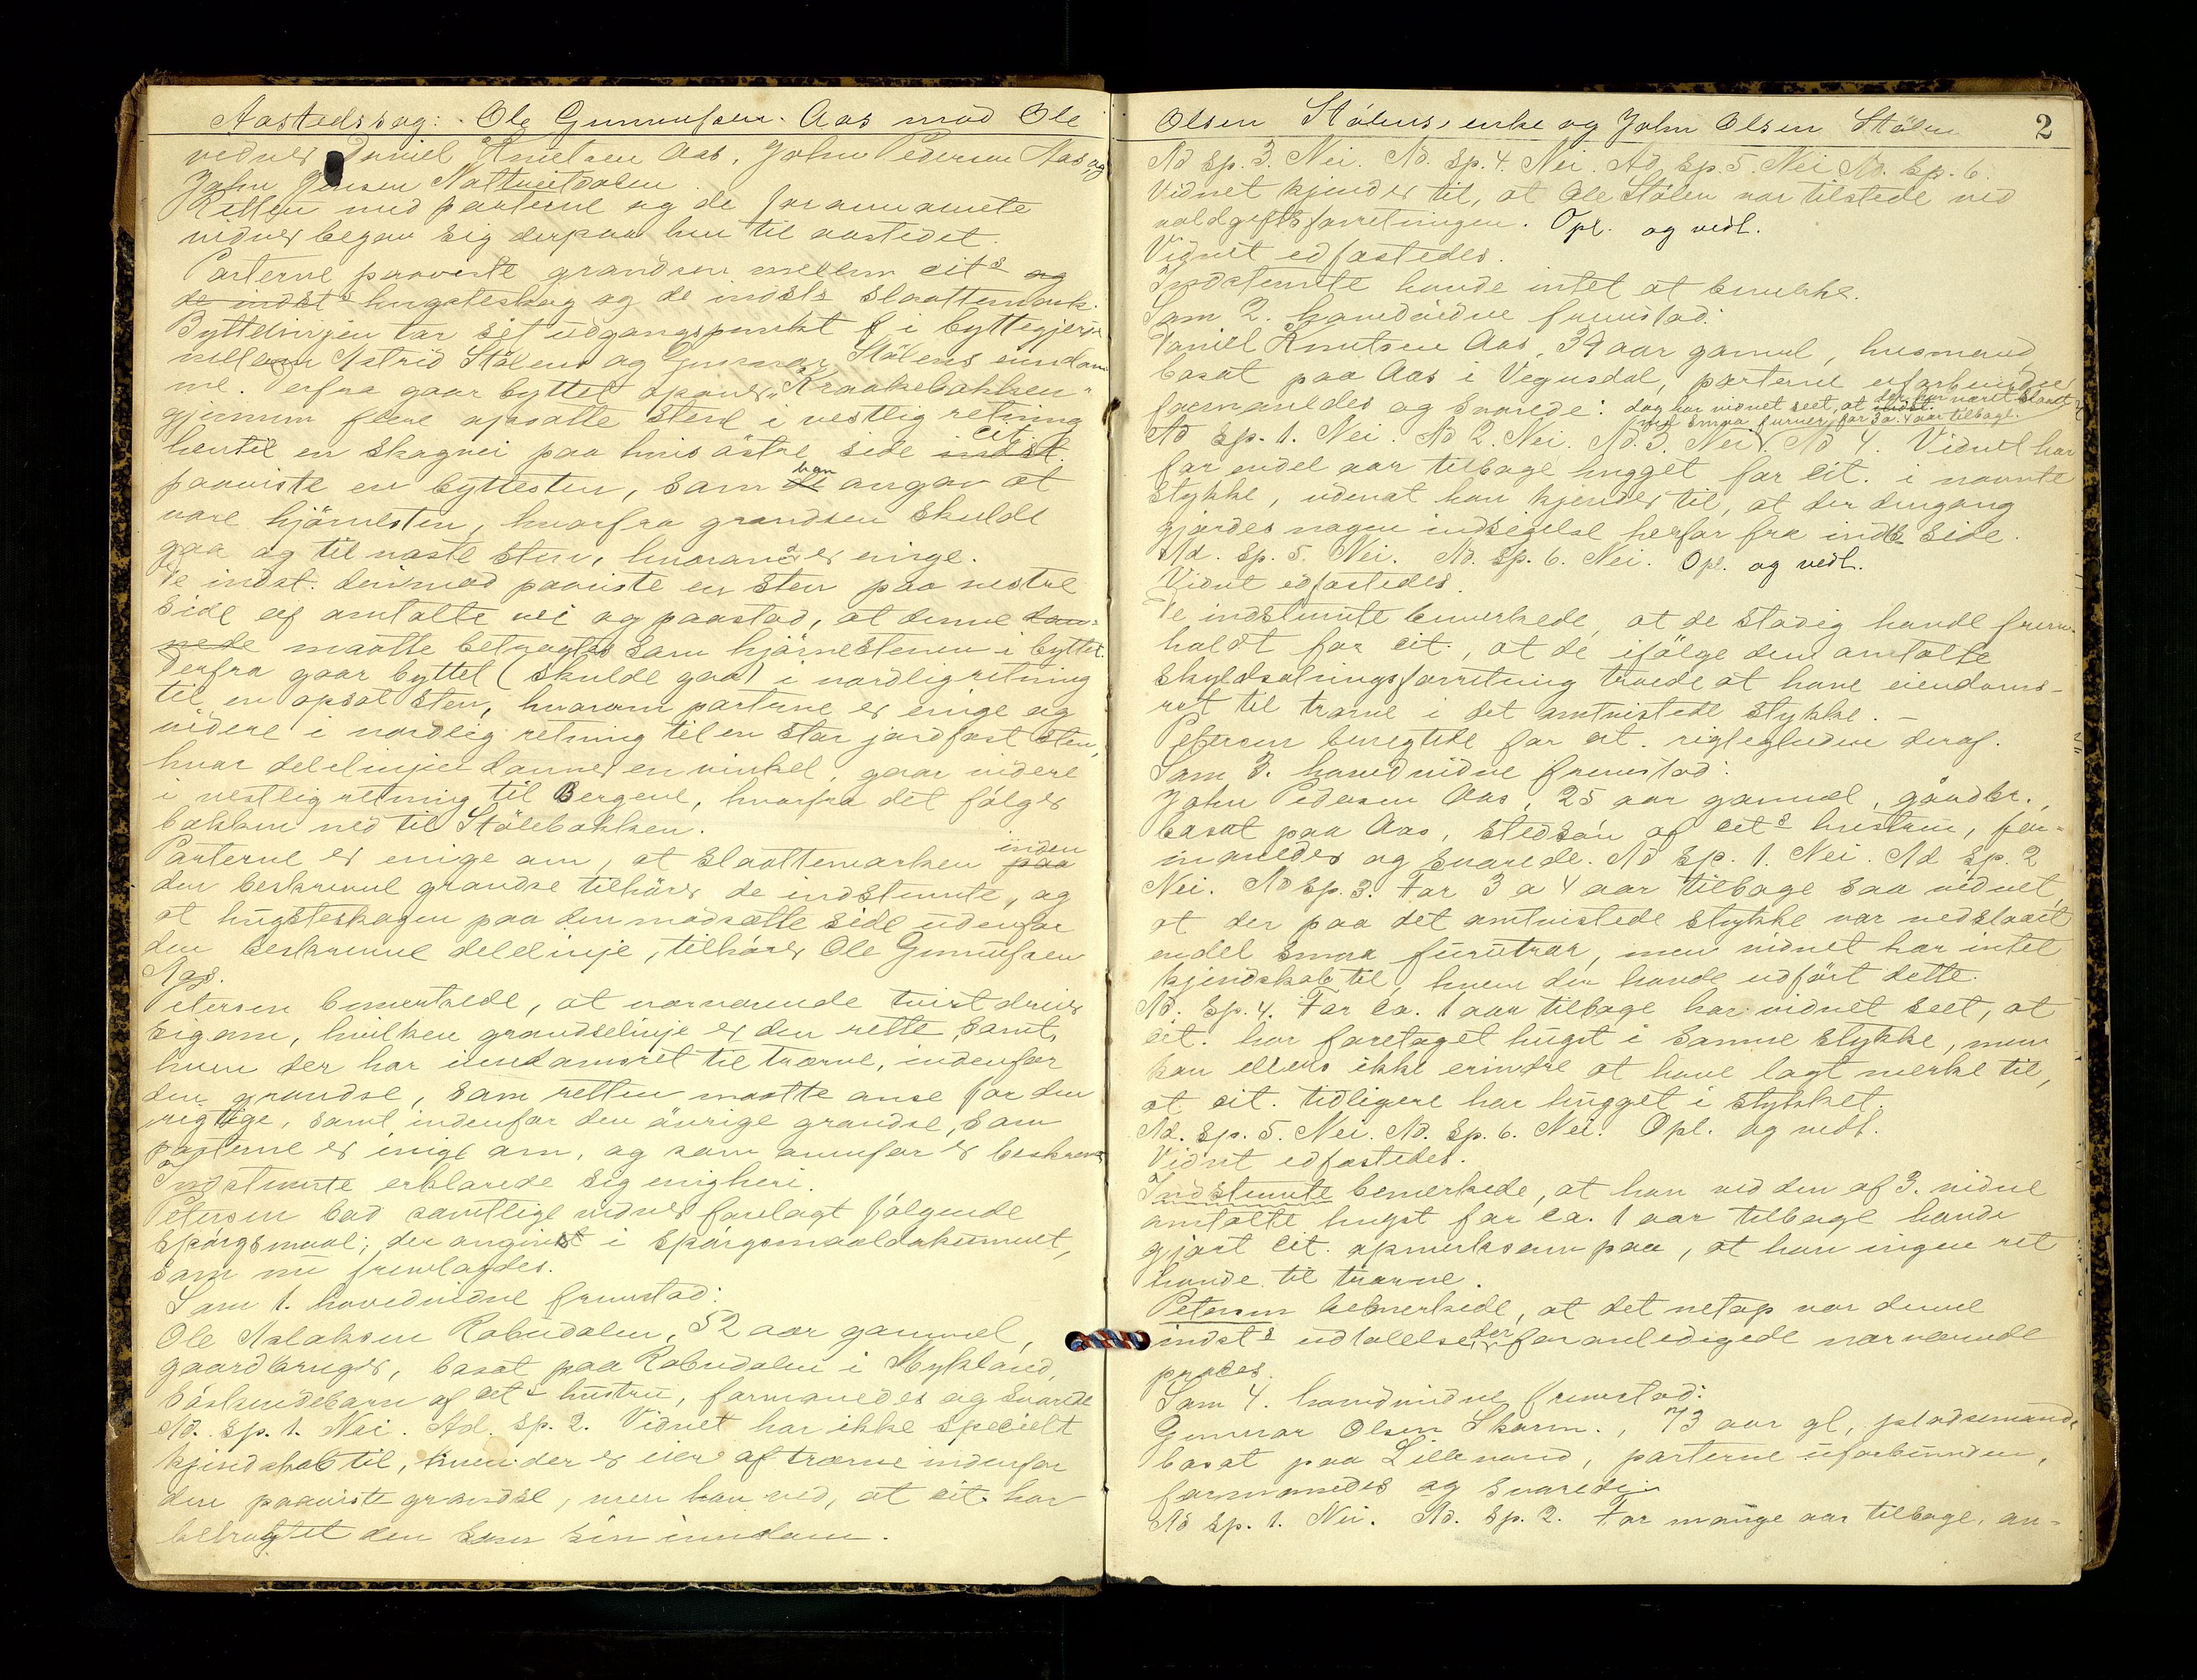 Aastedssag: Ole Gunnufsen Aas mod Ole
vidner Daniel Knutsen Aas, John Pedersen Aas og
John Jensen Nattveitdalen.
Retten med parterne og de forannævnte
vidner begav sig derpaa hen til aastedet.
Parterne paaviste grændsen mellem cits og
de indsts hugsteskog og de indsts slaattemark.
Byttelinjen tar sit udgangspunkt i byttegjerde
mellem Astrid Stålens og Gunnar Stålens eiendom
me. Derfra gaar byttet opover "Kraakebakken"
gjennem flere opsatte stene i vestlig retning
hentil en skogvei paa hvis östre side indst. cit.
paaviste en byttesten, som de han angav at
være hjörnesten, hvorfra grændsen skulde
gaa og til næste sten, hvorom de er enige.
De indst. derimod paaviste en sten paa vestre
side af omtalte vei og paastod, at denne dan-
nede maatte betragtes som hjörnestenen i byttet.
Derfra gaar byttet (skulde gaa) i nordlig retning
til en opsat sten, hvorom parterne er enige og
videre i nordlig retning til en stor jordfast sten,
hvor delelinjen danner en vinkel, gaar videre
i vestlig retning til Bergene, hvorfra det fölger
bakken ned til Stölebakken.
Parterne er enige om, at slaattemarken paa inden
den beskrevne grændse tilhörer de indstevnte, og
at hugsteskogen paa den modsatte side udenfor
den beskrevne delelinje, tilhörer Ole Gunnufsen
Aas.
Petersen bemerkede, at nærværende tvist dreier
sig om, hvilken grændselinje er den rette, samt,
hvem der har eiendomsret til trærne, indenfor
den grændse, som retten maatte anse for den
rigtige, samt indenfor den övrige grændse, som
parterne er enige om, og som ovenfor er beskreven
Indstevnte erklærede sig enig heri.
Petersen bad samtlige vidner forelagt fölgende
spörgsmaal, der angivet i spörgsmaalsdokument,
som nu fremlagdes.
Som 1. hovedvidne fremstod:
Ole Aslaksen Robudalen, 52 aar gammel,
gaardbruger, bosat paa Robudalen i Mykland,
söskendebarn af cits hustru, formanedes og svarede
Ad. Sp. 1. Nei. Ad. Sp. 2. Vidnet har ikke specielt
kjendskab til, hvem der er eier af trærne indenfor
den paaviste grændse, men han ved, at cit. har
betragtet den som sin eiendom.
Olsen Stålens enke og John Olsen Stålen 2
Ad Sp. 3. Nei. Ad. Sp. 4. Nei. Ad. Sp. 5. Nei Ad. Sp. 6.
Vidnet kjender til, at Ole Stålen var tilstede ved
voldgiftsforretningen. Opl. og vedt.
Vidnet edfæstedes.
Indstevnte havde intet at bemerke.
Som 2. hovedvidne fremstod:
Daniel Knutsen Aas, 39 aar gammel, husmand,
bosat paa Aas i Vegusdal, parterne uforbunden
formanedes og svarede: dog har vidnet seet, at indst. der har været slaaet
ned smaa furuer for 3 a 4 aar tilbage.
Ad Sp. 1. Nei. Ad 2. Nei. Ad. 3. Nei. Ad 4. Vidnet har
for endel aar tilbage hugget for cit. i nævnte
stykke, udenat han kjender til, at der dengang
gjordes nogen indsigelse herfor fra indts side.
Ad. Sp. 5. Nei. Ad. Sp. 6. Nei. Opl. og vedt.
Vidnet edfæstedes.
De indstevnte bemerkede, at de stadig havde frem-
holdt for cit., at de ifölge den omtalte
skyldsætningsforretning troede at have eiendoms-
ret til trærne i det omtvistede stykke. –
Petersen benegtede for cit. rigtigheden deraf.
Som 3. hovedvidne fremstod:
John Pedersen Aas, 25 aar gammel, gaardbr.,
bosat paa Aas, stedsön af cits hustru, for-
manedes og svarede. Ad Sp. 1. Nei. Ad Sp. 2
Nei. Ad Sp. 3. For 3 a 4 aar tilbage saa vidnet,
at der paa det omtvistede stykke var nedslaaet
endel smaa furutrær, men vidnet har intet
kjendskab til, hvem der havde udført dette.
Ad. Sp. 4. For ca. 1 aar tilbage har vidnet seet, at
cit. har foretaget hugst i samme stykke, men
kan ellers ikke erindre at have lagt merke til,
at cit. tidligere har hugget i stykket.
Ad. Sp. 5. Nei. Ad. Sp. 6. Nei. Opl. og vedt.
Vidnet edfæstedes.
Indstevnte bemerkede, at han ved den af 3. vidne
omtalte hugst for ca. 1 aar tilbage havde
gjort cit. opmerksom paa, at han ingen ret
havde til trærne.
Petersen bemerkede, at det netop var denne
indsts udtalelse, der foranledigede nærværende
proces.
Som 4. hovedvidne fremstod:
Gunnar Olsen Skarm., 73 aar gl, pladsemand,
bosat paa Lillevand, parterne uforbunden,
formanedes og svarede:
Ad Sp. 1. Nei. Ad. Sp. 2. For mange aar tilbage, an-